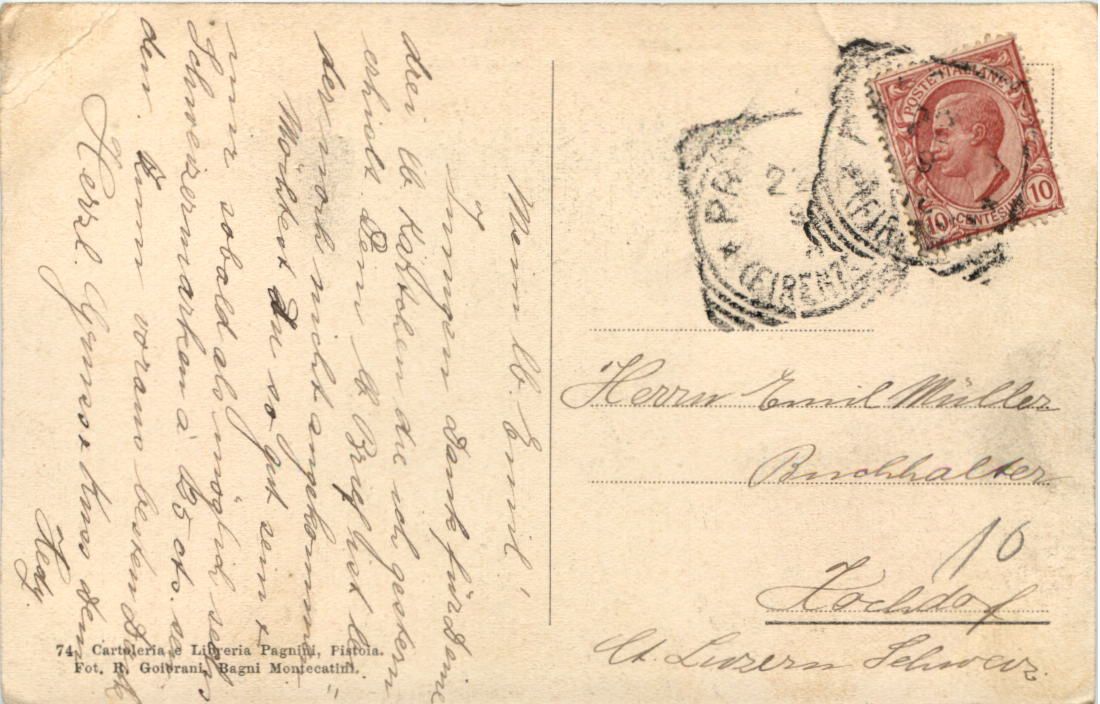 Mein lb. Emil!
Innigen Dank für Deine
drei lb. Kärtchen die ich gestern
erhielt. Dein lb. Brief ist lei-
der noch nicht angekommen.
Möchtest Du so gut sein &
mir sobald als möglich sechs
Schweizermarken à 25 cts. sen-
den. Zum voraus besten Dank
Herzl. Gruss & Kuss Dein
Hedy.
74 Cartoleria e Libreria Pagnini, Pistoia.
Fot. R. Goiorani, Bagni Montecatini.
POSTE ITALIANE
10 CENTESIMI 10
(FIRENZE)
Herrn Emil Müller
Buchhalter
Hochdorf
Ct. Luzern Schweiz.
10